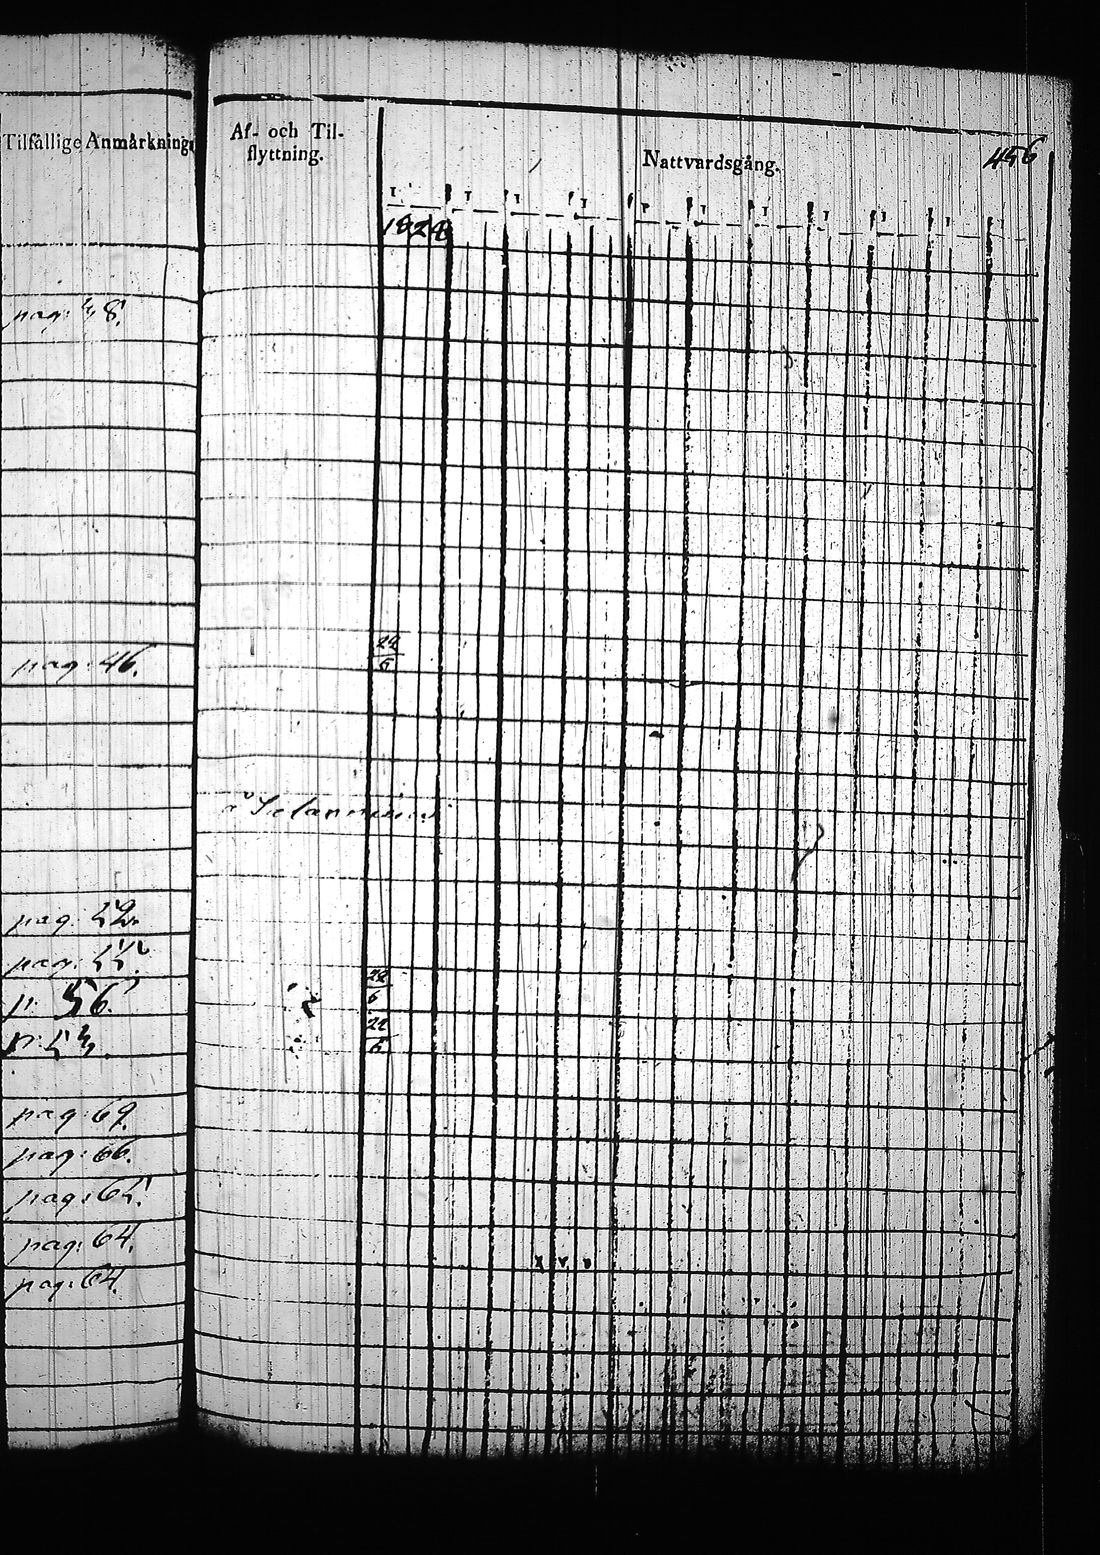 Tilfällige Anmärkning
Af- och Til-
flyttning.
Nattvardsgång.
456
1828
pag: 48.
pag: 46.
22
6
pag:
pag:
p. 56.
22
6
22
6
pag: 69.
pag: 66.
pag: 65.
pag: 64.
pag: 64.